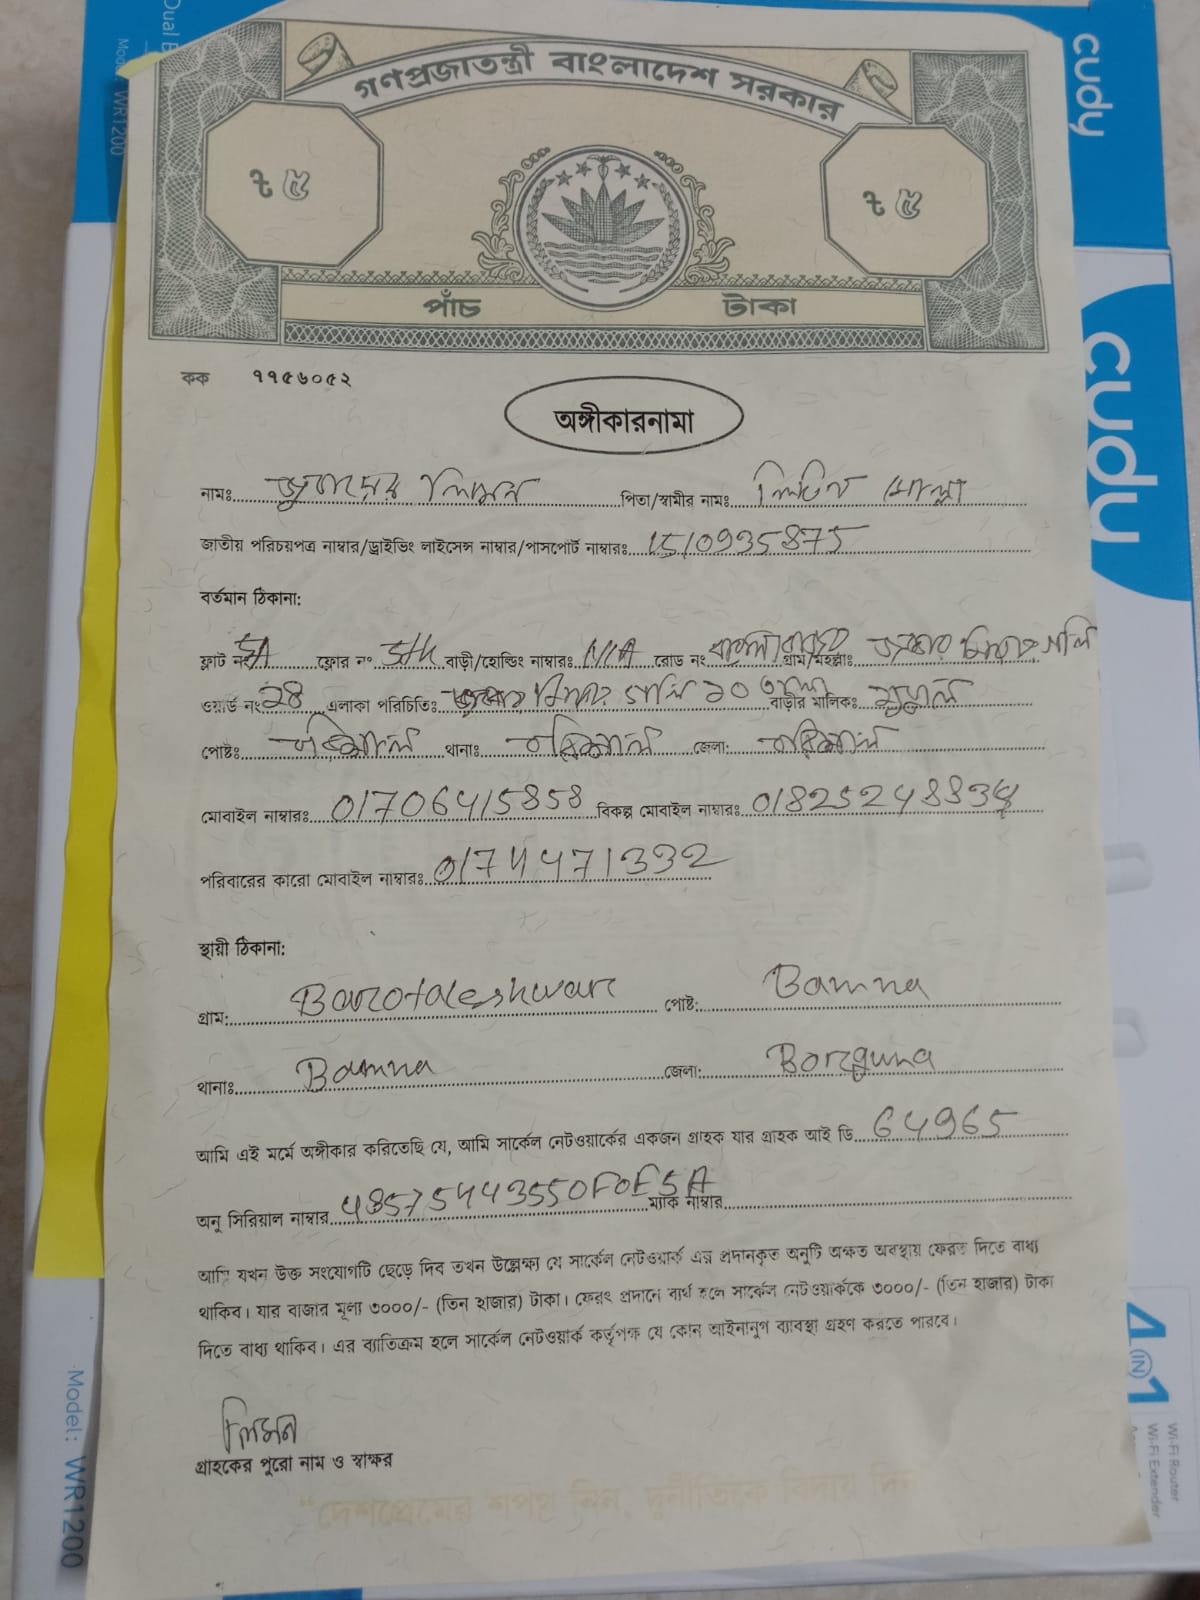 গণপ্রজাতন্ত্রী বাংলাদেশ সরকার
৳ ৫
৳ ৫
পাঁচ টাকা
কক ৭৭৫৬০৫২
অঙ্গীকারনামা
নামঃ জুবায়ের লিমন পিতা/স্বামীর নামঃ লিটন মোল্লা
জাতীয় পরিচয়পত্র নাম্বার/ড্রাইভিং লাইসেন্স নাম্বার/পাসপোর্ট নাম্বারঃ 1510935875
বর্তমান ঠিকানা:
ফ্লাট নং 5A ফ্লোর নং 5th বাড়ী/হোল্ডিং নাম্বারঃ N/A রোড নং গ্রাম/মহল্লাঃ গলি
ওয়ার্ড নং 28 এলাকা পরিচিতিঃ গলি ১০ তলা বাড়ীর মালিকঃ
পোষ্টঃ বরিশাল থানাঃ বরিশাল জেলা: বরিশাল
মোবাইল নাম্বারঃ 01706415858 বিকল্প মোবাইল নাম্বারঃ
পরিবারের কারো মোবাইল নাম্বারঃ 01744471332
স্থায়ী ঠিকানা:
গ্রাম: Barotaleshwar পোষ্ট: Bamna
থানাঃ Bamna জেলা: Borguna
আমি এই মর্মে অঙ্গীকার করিতেছি যে, আমি সার্কেল নেটওয়ার্কের একজন গ্রাহক যার গ্রাহক আই ডি 64965
অনু সিরিয়াল নাম্বার 48575443550F0F5A ম্যাক নাম্বার
আমি যখন উক্ত সংযোগটি ছেড়ে দিব তখন উল্লেক্ষ্য যে সার্কেল নেটওয়ার্ক এর প্রদানকৃত অনুটি অক্ষত অবস্থায় ফেরত দিতে বাধ্য
থাকিব। যার বাজার মূল্য ৩০০০/- (তিন হাজার) টাকা। ফেরৎ প্রদানে ব্যর্থ হলে সার্কেল নেটওয়ার্ককে ৩০০০/- (তিন হাজার) টাকা
দিতে বাধ্য থাকিব। এর ব্যাতিক্রম হলে সার্কেল নেটওয়ার্ক কর্তৃপক্ষ যে কোন আইনানুগ ব্যাবস্থা গ্রহণ করতে পারবে।
লিমন
গ্রাহকের পুরো নাম ও স্বাক্ষর
"দেশপ্রেমের শপথ নিন, দুর্নীতিকে বিদায় দিন
cudy
cudy
4 IN 1
Wi-Fi Router
Wi-Fi Extender
Model: WR1200